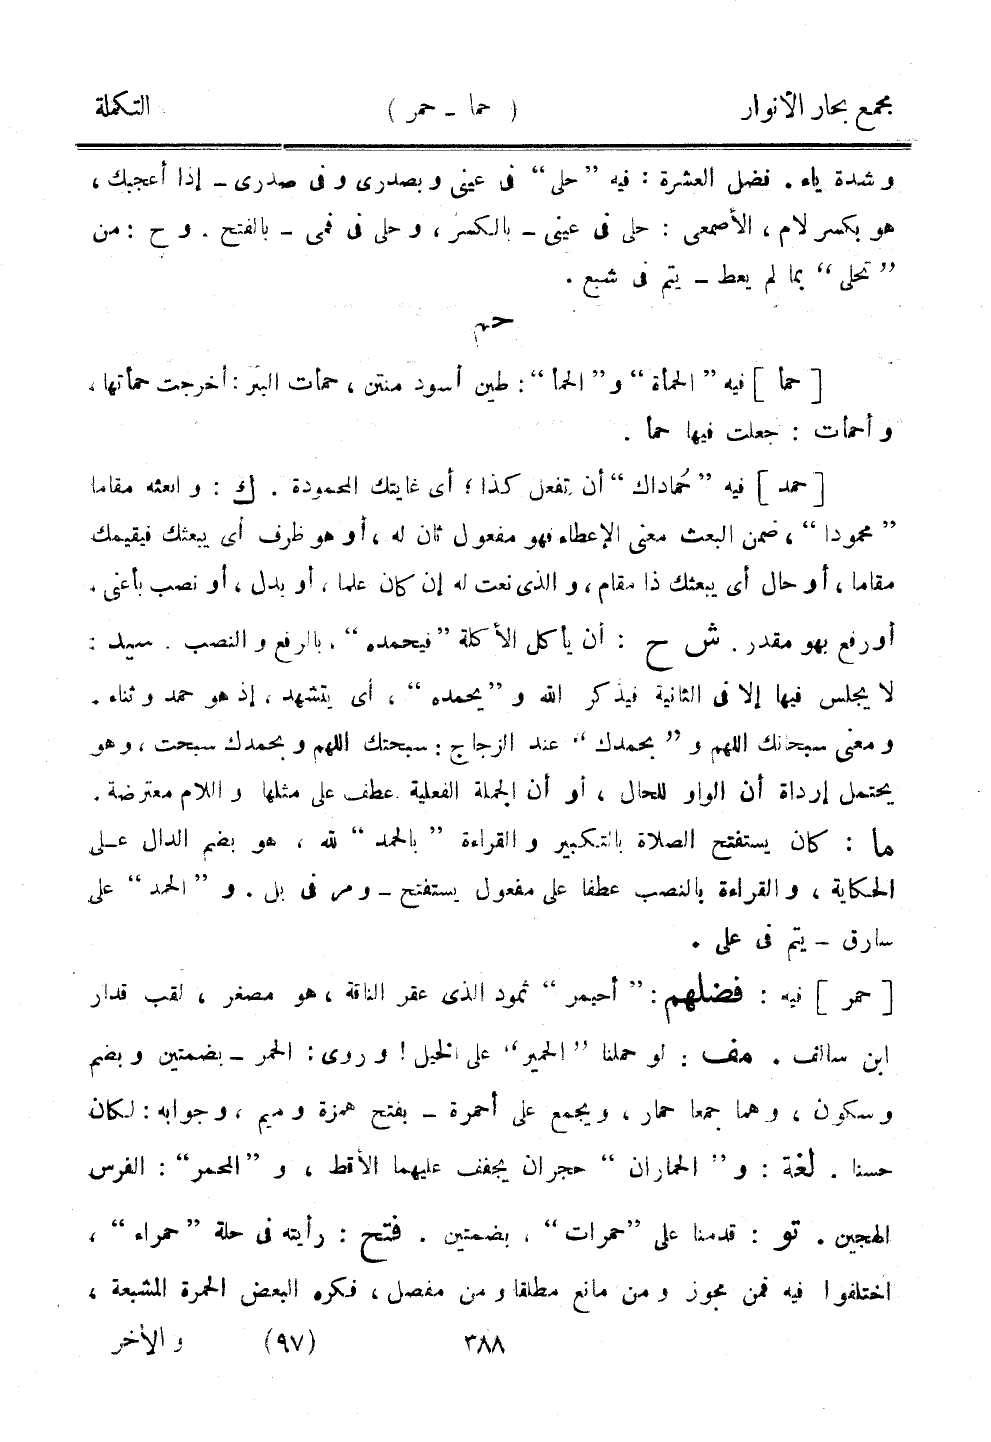 مجمع بحار الأنوار ( حما ـ حمر ) التكملة
و شدة ياء . فضل العشرة : فيه ”حلى“ فى عينى و بصدرى و فى صدرى ـ إذا أعجبك ،
هو بكسر لام ، الأصمعى : حلى فى عينى ـ بالكسر ، و حلى فى فمى ـ بالفتح . و ح : من
”تحلى“ بما لم يعط ـ يتم فى شبع .
حم
[ حمأ ] فيه ”الحمأة“ و ”الحمأ“ : طين أسود منتن ، حمأت البئر : أخرجت حمأتها ،
و أحمأت : جعلت فيها حمأ .
[ حمد ] فيه ”حُماداك“ أن تفعل كذا ؛ أى غايتك المحمودة . ك : و ابعثه مقاما
”محمودا“ ، ضمن البعث معنى الإعطاء فهو مفعول ثان له ، أو هو ظرف أى يبعثك فيقيمك
مقاما ، أو حال أى يبعثك ذا مقام ، و الذى نعت له إن كان علما ، أو بدل ، أو نصب بأعنى .
أو رفع بهو مقدر . ش ح : أن يأكل الأكلة ”فيحمده“ . بالرفع و النصب . سيد :
لا يجلس فيها إلا فى الثانية فيذكر الله و ”يحمده“ ، أى يتشهد ، إذ هو حمد و ثناء .
و معنى سبحانك اللهم و ”بحمدك“ عند الزجاج : سبحتك اللهم و بحمدك سبحت ، و هو
يحتمل إرداة أن الواو للحال ، أو أن الجملة الفعلية عطف على مثلها و اللام معترضة .
ما : كان يستفتح الصلاة بالتكبير و القراءة ”بالحمد“ لله ، هو بضم الدال على
الحكاية ، و القراءة بالنصب عطفا على مفعول يستفتح ـ و مر فى بل . و ”الحمد“ على
سارق ـ يتم فى على .
[ حمر ] فيه : فضلهم : ”أحيمر“ ثمود الذى عقر الناقة ، هو مصغر ، لقب قدار
ابن سالف . مف : لو حملنا ”الحمير“ على الخيل ! و روى : الحمر ـ بضمتين و بضم
و سكون ، و هما جمعا حمار ، و يجمع على أحمرة ـ بفتح همزة و ميم ، و جوابه : لكان
حسنا . لغة : و ”الحماران“ حجران يجفف عليهما الأقط ، و ”المحمر“ : الفرس
الهجين . تو : قدمنا على ”حمرات“ ، بضمتين . فتح : رأيته فى حلة ”حمراء“ ،
اختلفوا فيه فمن مجوز و من مانع مطلقا و من مفصل ، فكره البعض الحمرة المشبعة ،
٣٨٨ (٩٧) و الأخر